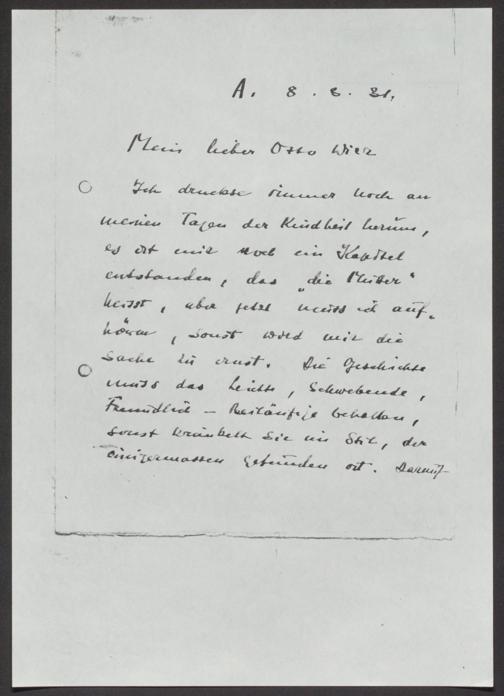 A. 8. 8. 31.
Mein lieber Otto Wirz
Ich druckse immer noch an
meinen Tagen der Kindheit herum,
es ist mir noch ein Kapitel
entstanden, das „die Mutter“
heisst, aber jetzt muss ich auf-
hören, sonst wird mir die
Sache zu ernst. Die Geschichte
muss das Leichte, Schwebende,
Freundlich – Beiläufige behalten,
sonst wrünkelt sie im Stil, der
einigermassen gefunden ist. Darauf